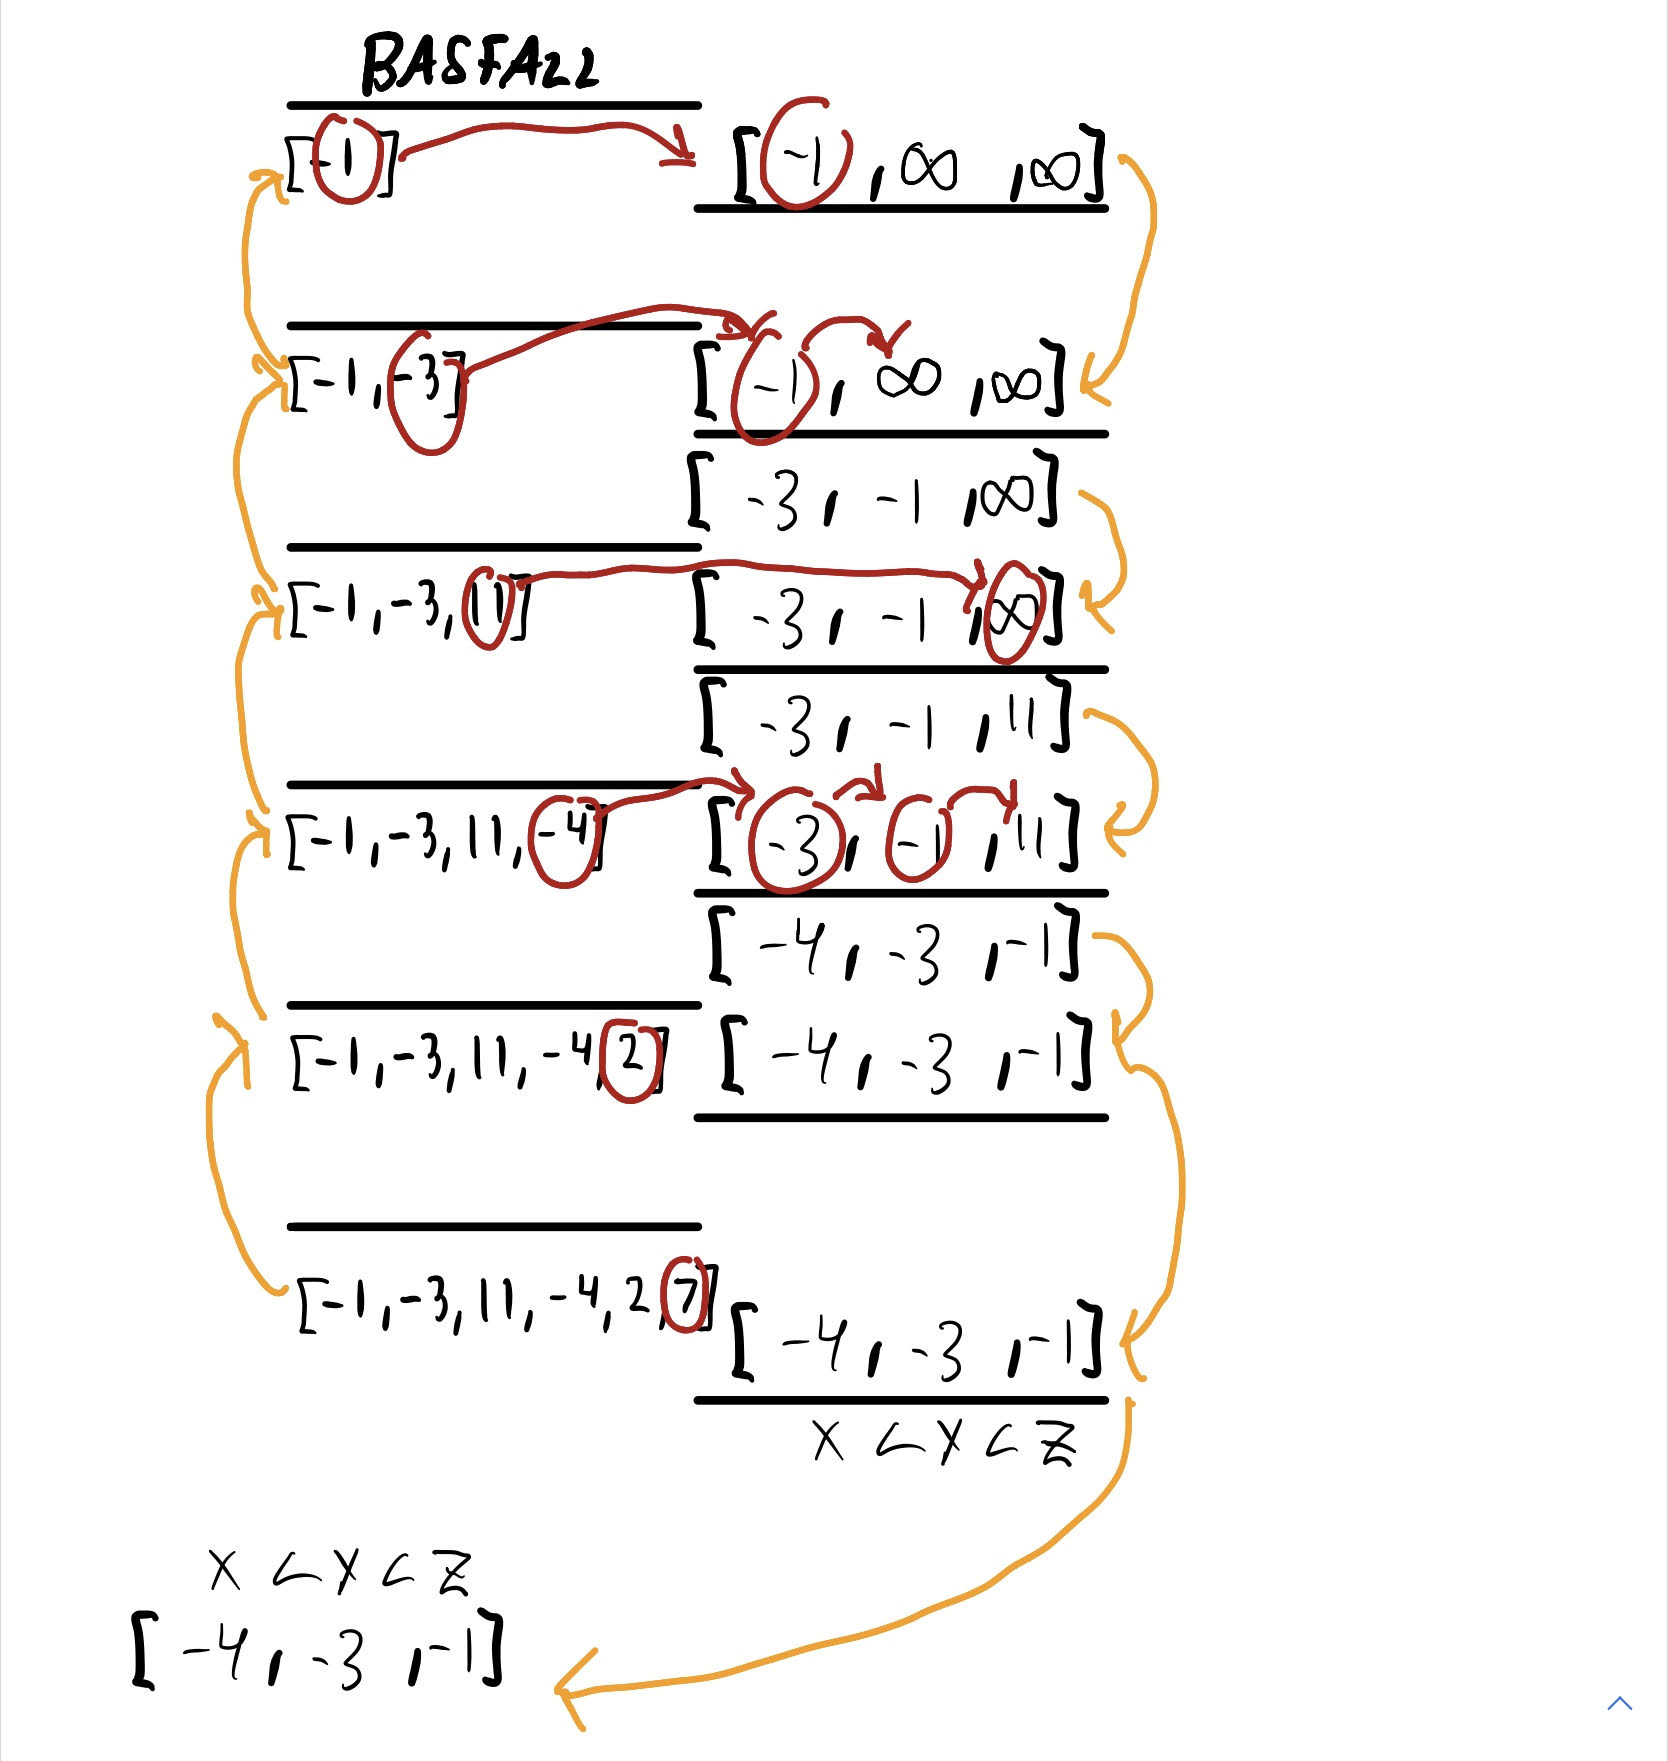 BASFALL
[-1] [-1, ∞, ∞]
[-1, -3] [-1, ∞, ∞]
[-3, -1, ∞]
[-1, -3, 11] [-3, -1, ∞]
[-3, -1, 11]
[-1, -3, 11, -4] [-3, -1, 11]
[-4, -3, -1]
[-1, -3, 11, -4, 2] [-4, -3, -1]
[-1, -3, 11, -4, 2, 7] [-4, -3, -1]
X < Y < Z
X < Y < Z
[-4, -3, -1]